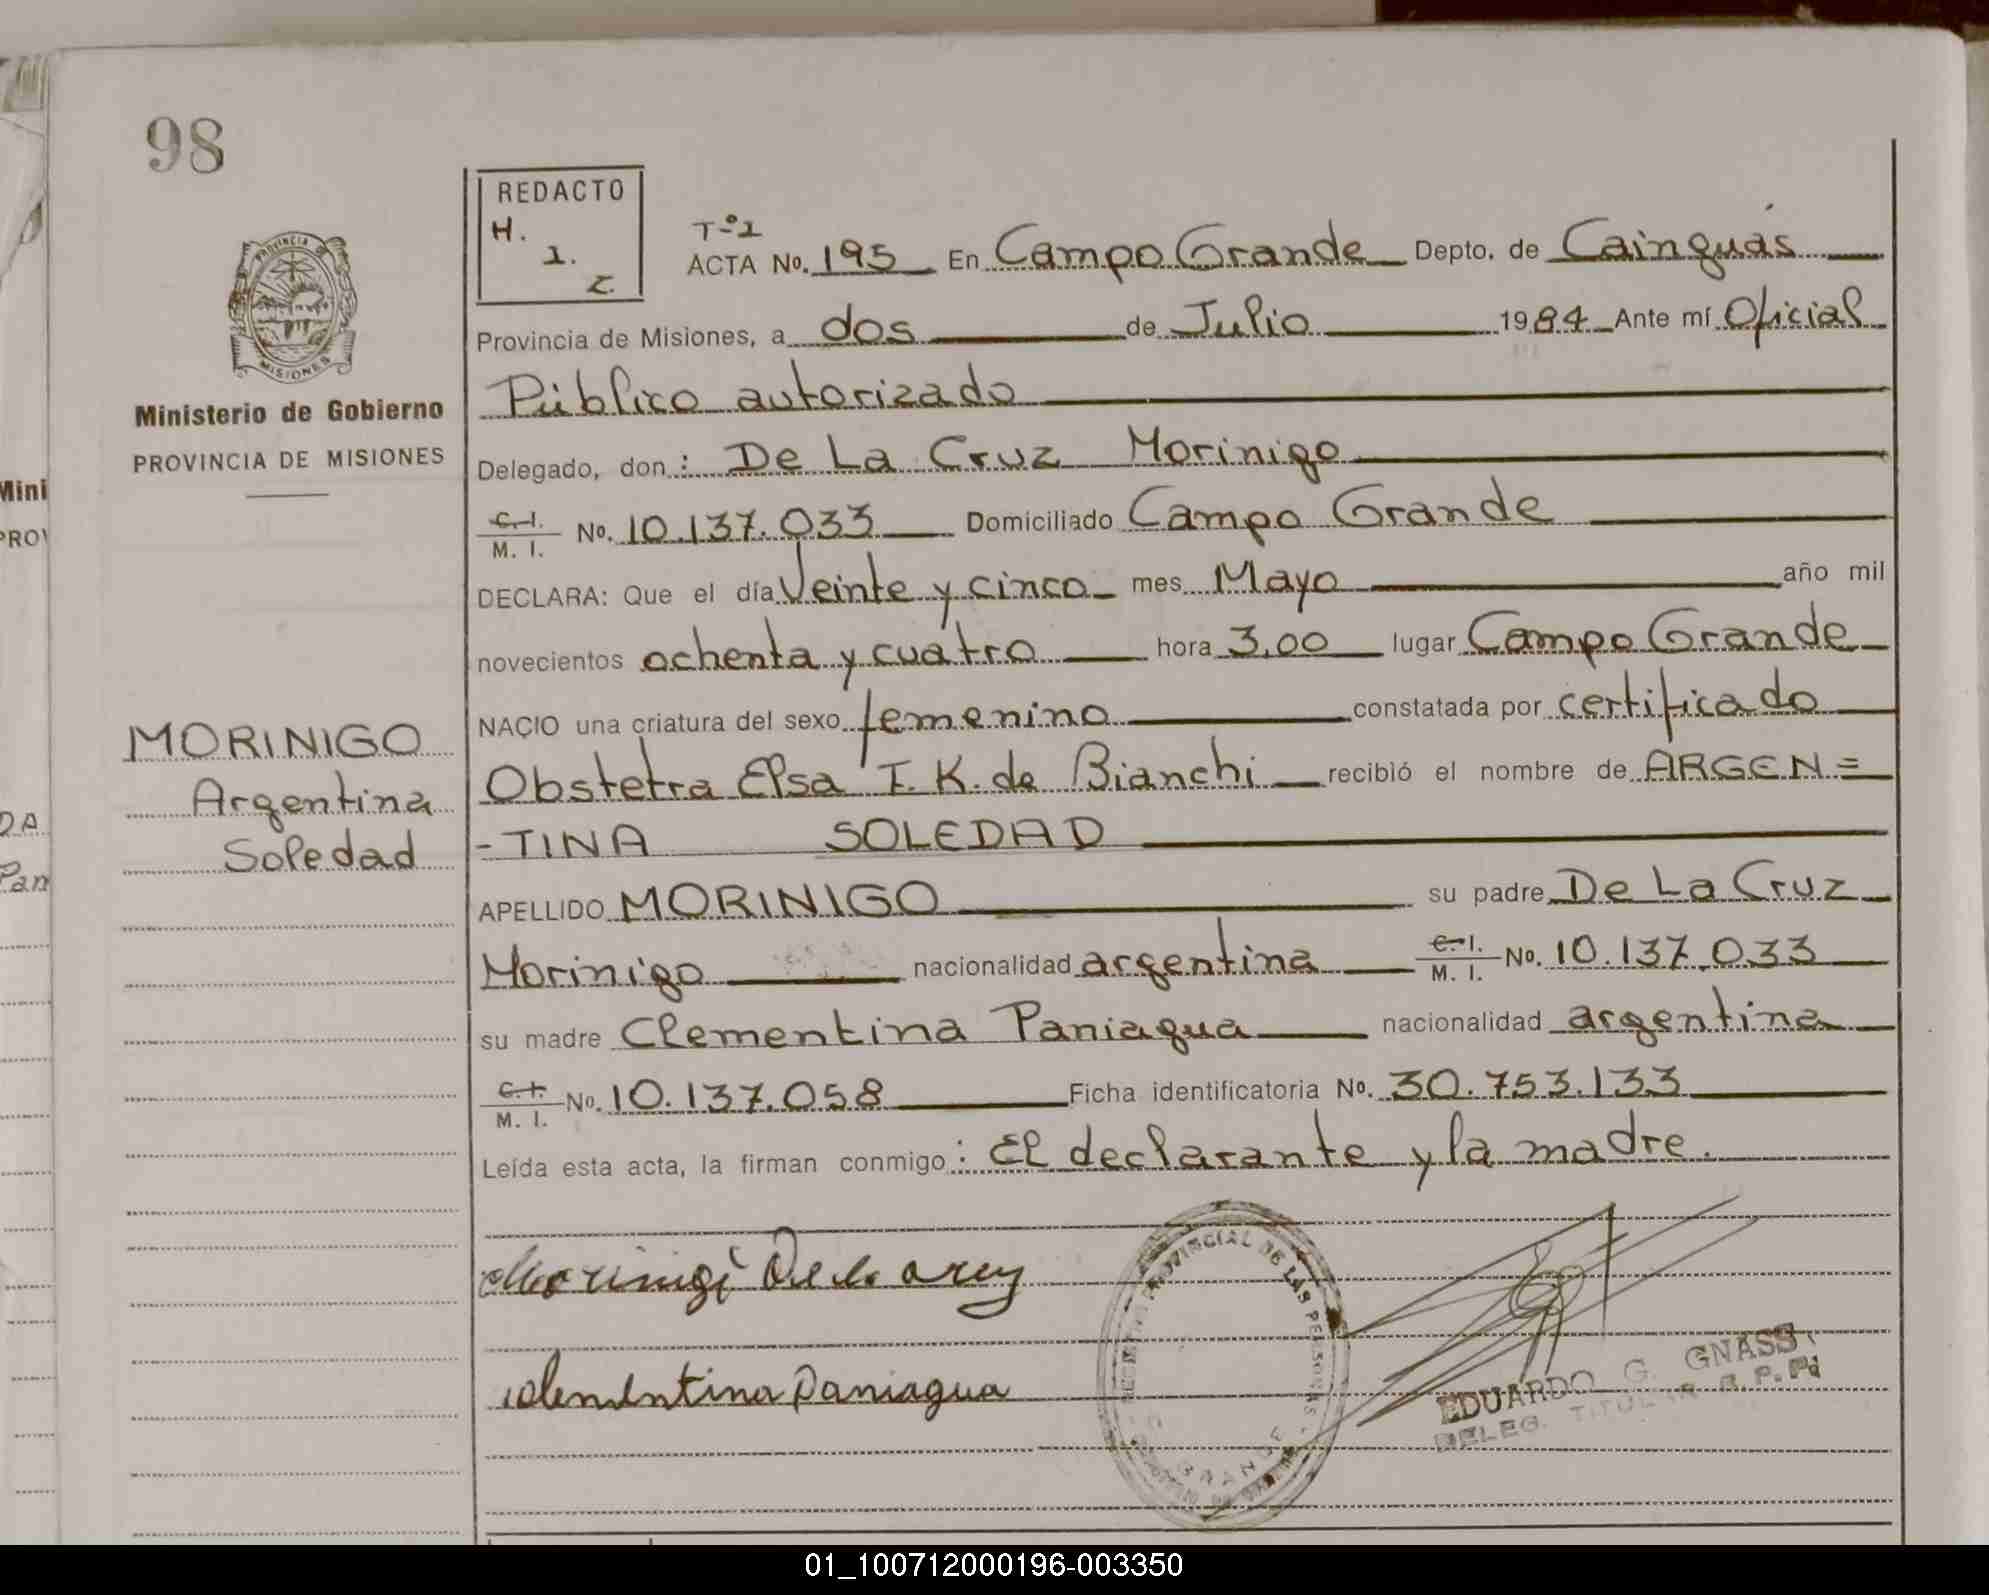 98
REDACTO
H.
1.
Z.
Tº1
ACTA No. 195 En Campo Grande Depto. de Cainguás
Provincia de Misiones, a dos de Julio 1984 Ante mí Oficial
Público autorizado
Delegado, don: De La Cruz Morinigo
C. I.
M. I. No. 10.137.033 Domiciliado Campo Grande
DECLARA: Que el día Veinte y cinco mes Mayo año mil
novecientos ochenta y cuatro hora 3,00 lugar Campo Grande
NACIO una criatura del sexo femenino constatada por certificado
Obstetra Elsa T. K. de Bianchi recibió el nombre de ARGEN=
-TINA SOLEDAD
APELLIDO MORINIGO su padre De La Cruz
Morinigo nacionalidad argentina C. I. M. I. No. 10.137.033
su madre Clementina Paniagua nacionalidad argentina
C. I.
M. I. No. 10.137.058 Ficha identificatoria No. 30.753.133
Leída esta acta, la firman conmigo: El declarante y la madre.
PROVINCIA DE
MISIONES
Ministerio de Gobierno
PROVINCIA DE MISIONES
MORINIGO
Argentina
Soledad
Clementina Paniagua
PROVINCIAL DE LAS PERSONAS
GRANDE
EDUARDO G. GNASS
DELEG. TITULAR R.P.P.
Mini
PROV
DA
Pan
01_100712000196-003350